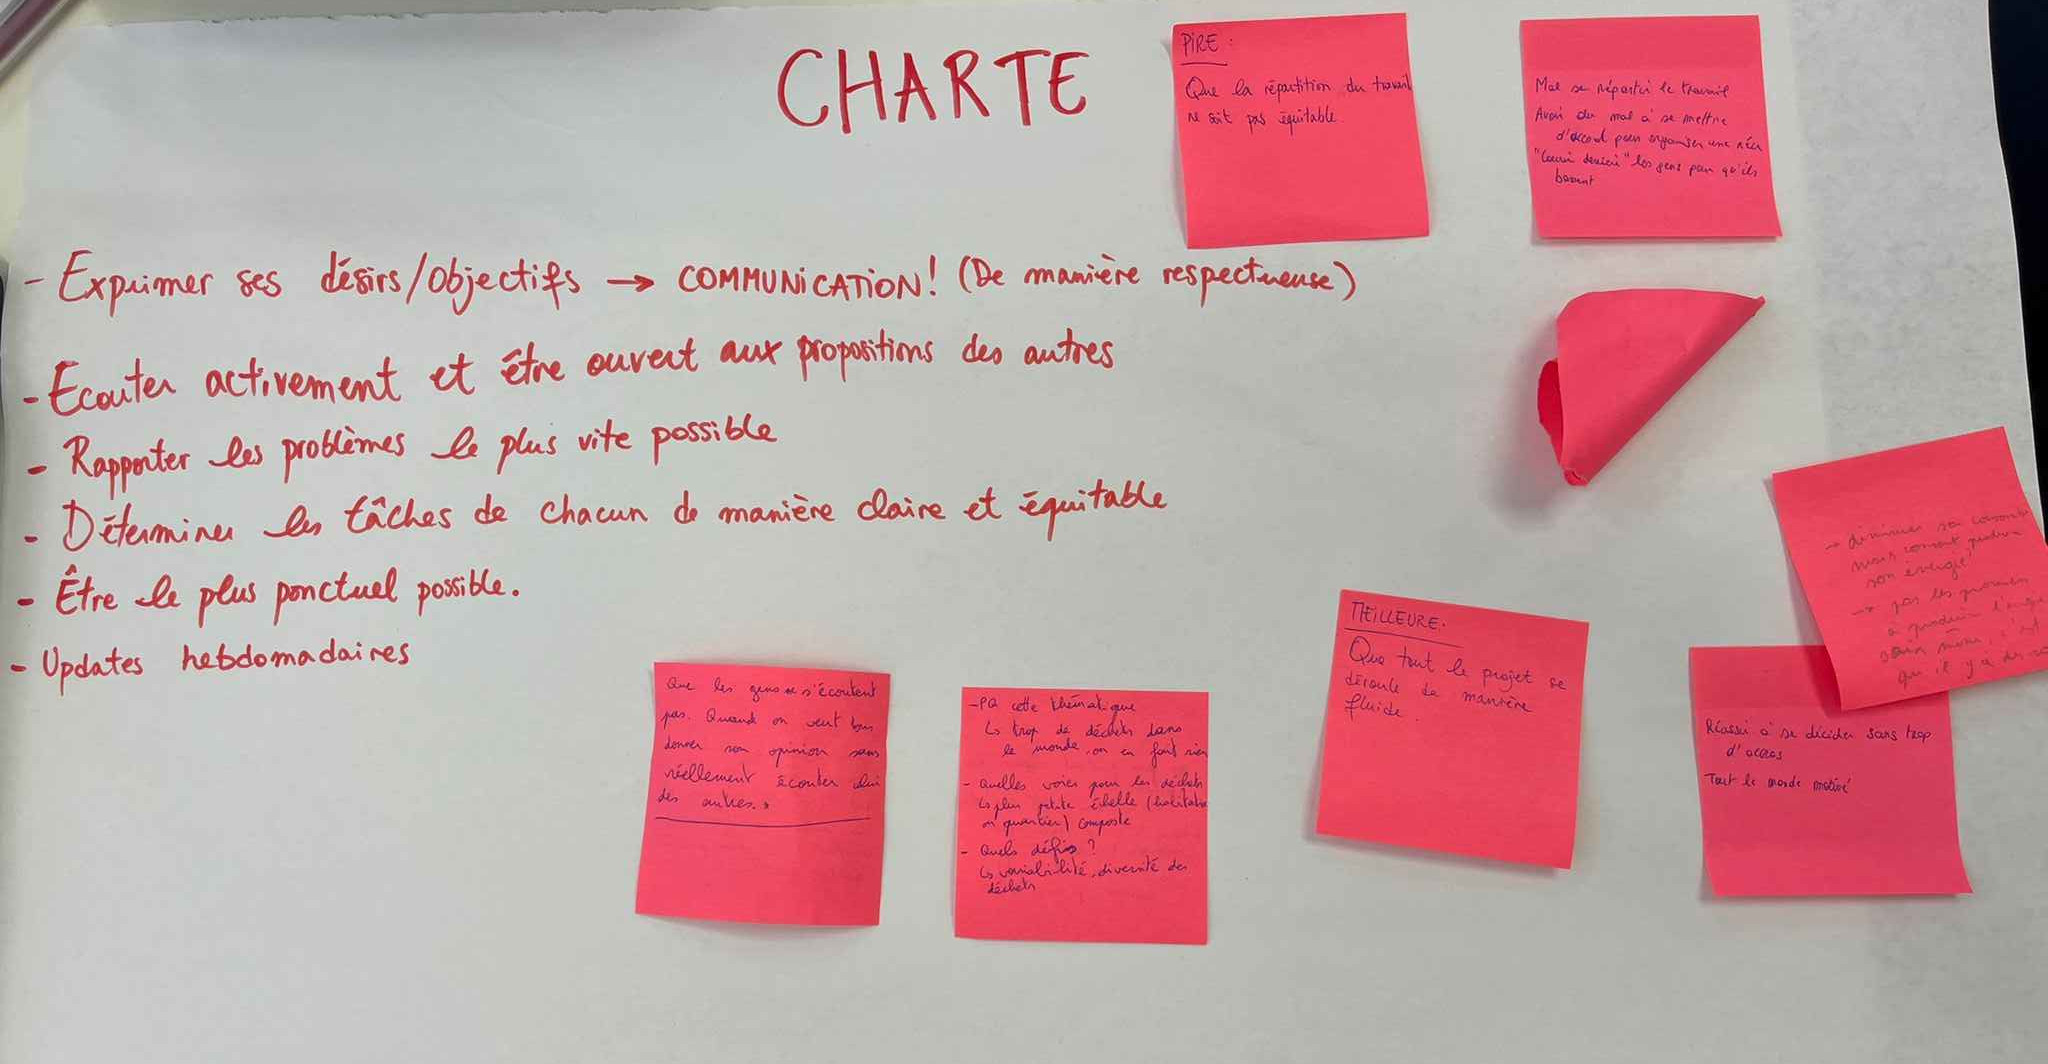 CHARTE
- Exprimer ses désirs/objectifs → COMMUNICATION! (De manière respectueuse)
- Ecouter activement et être ouvert aux propositions des autres
- Rapporter les problèmes le plus vite possible
- Déterminer les tâches de chacun de manière claire et équitable
- Être le plus ponctuel possible.
- Updates hebdomadaires
PIRE :
Que la répartition du travail
ne soit pas équitable.
Mal se répartir le travail
Avoir du mal à se mettre
d'accord pour organiser une réu
"Courir derrière" les gens pour qu'ils
bossent
→ diminuer sa
son énergie
→
à produire l'
qu'il y a
MEILLEURE.
Que tout le projet se
déroule de manière
fluide.
Réussir à se décider sans trop
d'accros
Tout le monde motivé
Que les gens ne s'écoutent
pas. Quand on veut
donner son opinion sans
réellement écouter celui
des autres.
- PQ cette thématique
↳ trop de déchets dans
le monde, on en fait rien
- Quelles voies pour les déchets
↳ plus petite échelle (habitats
ou quartier) composte
- Quels défis ?
↳ variabilité, diversité des
déchets